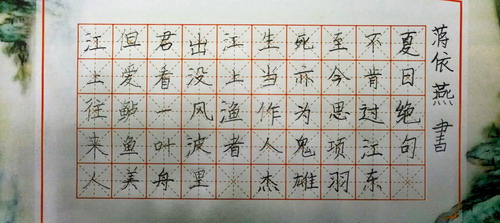 江上往来人
但爱鲈鱼美
君看一叶舟
出没风波里
江上渔者
生当作人杰
死亦为鬼雄
至今思项羽
不肯过江东
夏日绝句
蒋依燕書